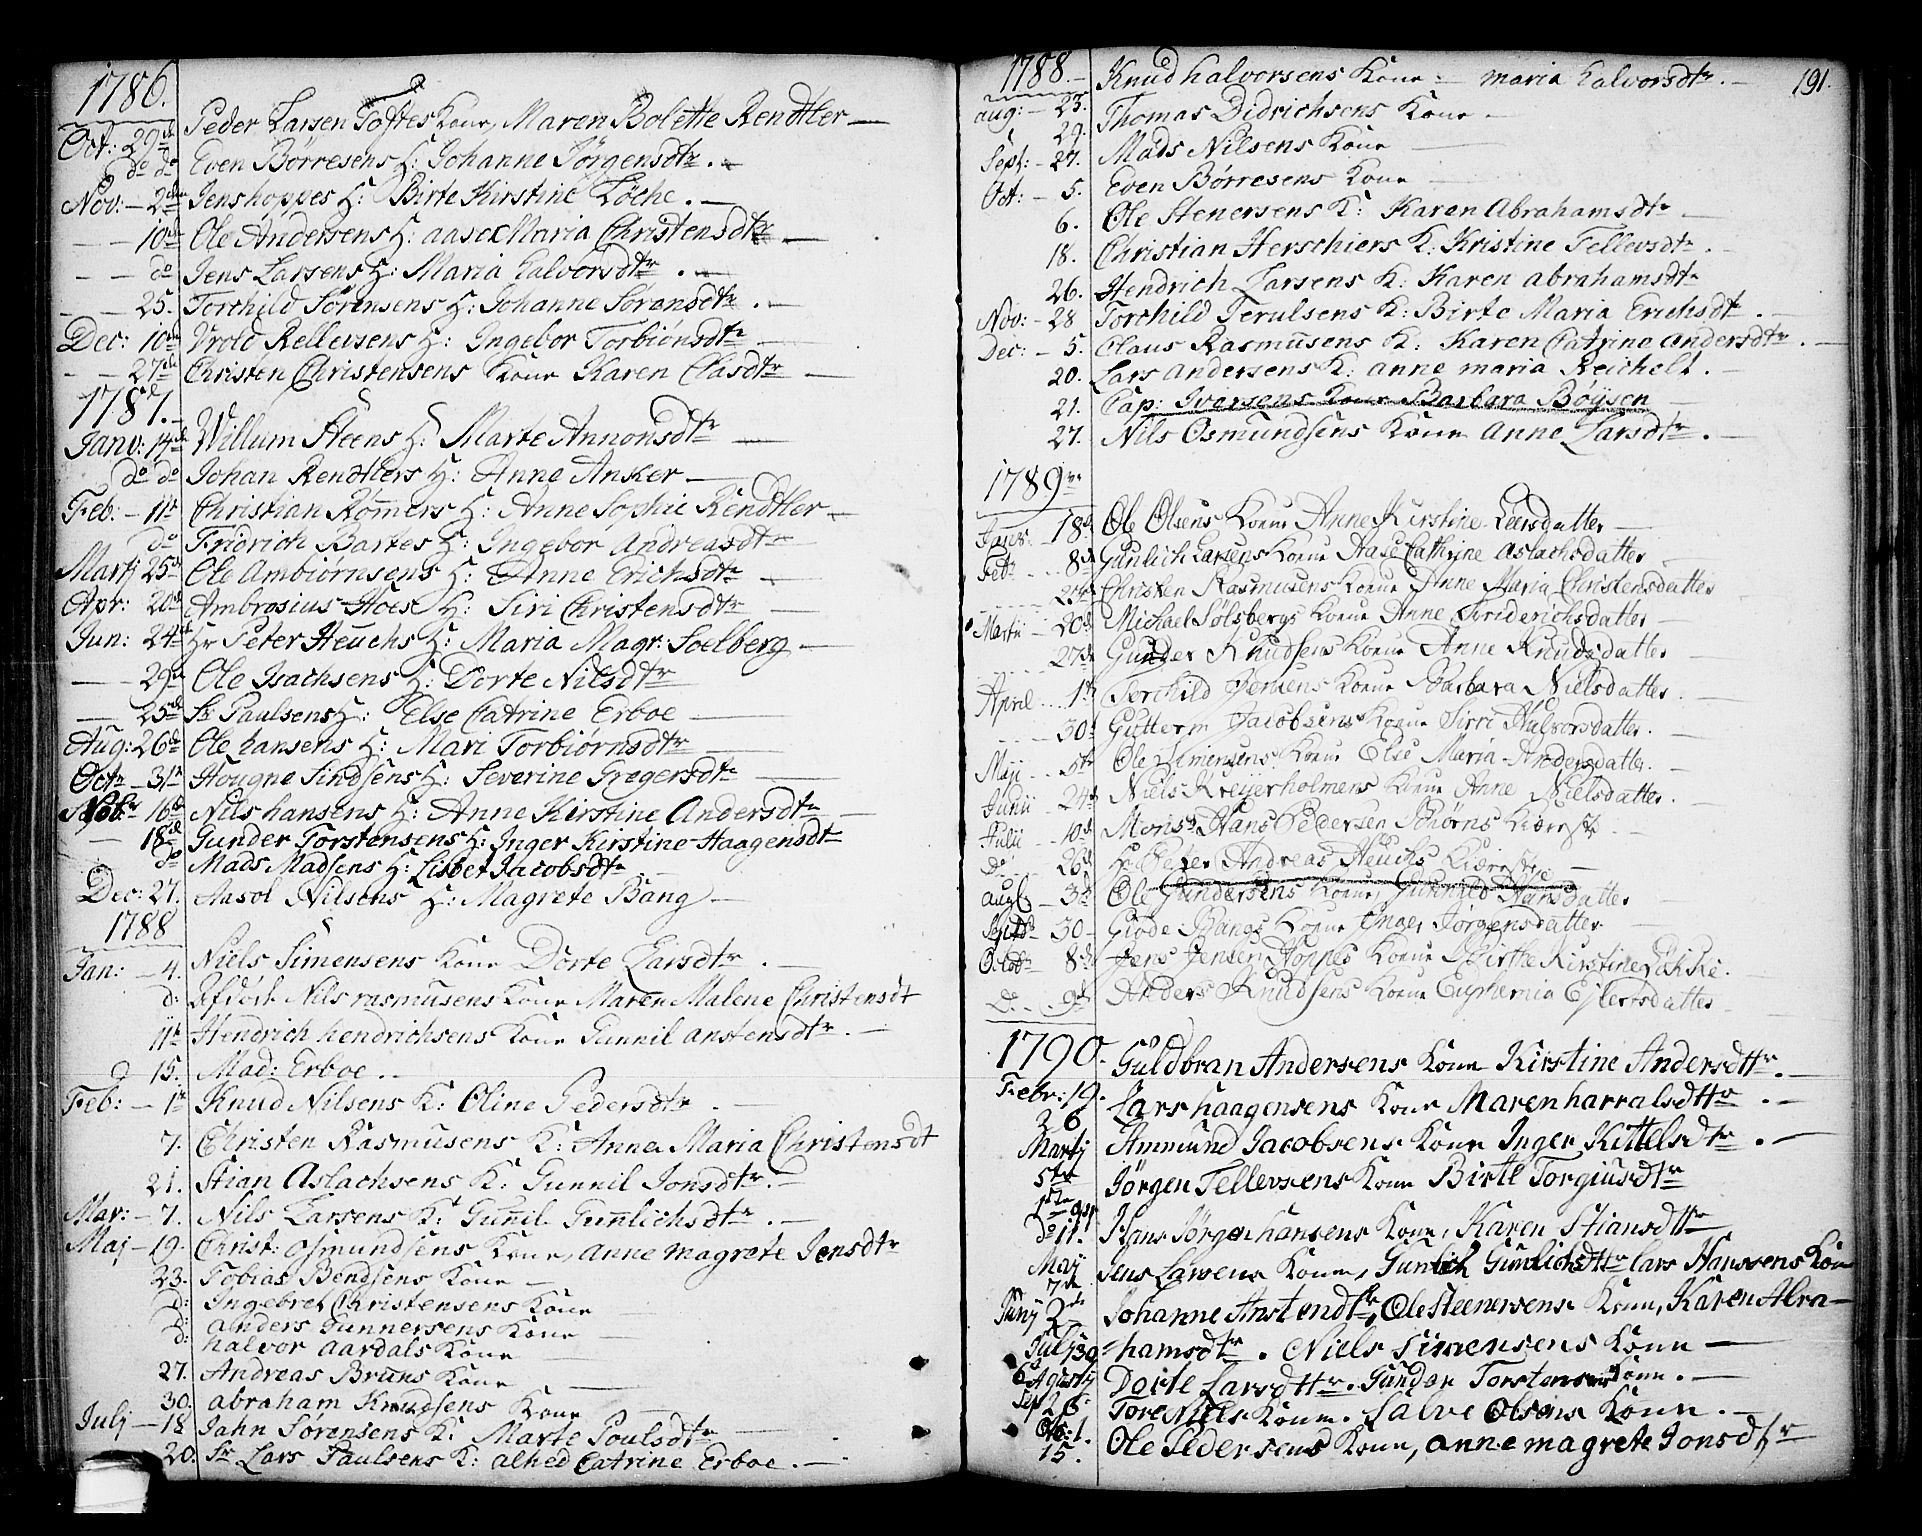 1786.
Oct: 29de Peder Larsen Toftes Kone, Maren Bolette Rendtler —
do do Even Börresens H: Johanne Jörgensdtr. —
Nov: — 2den Jens hoppes H: Birte Kirstine Löche. —
— — 10de Ole Andersens H: aase Maria Christensdtr —
— — do Jens Larsens H: Maria halvorsdtr. —
— — 25. Torchild Sörensens H: Johanne Sörensdtr. —
Dec: 10de Vrold Rellevsens H: Ingebor Torbiönsdtr —
— — 27de Christen Christensens Kone Karen Clasdtr —
1787.
Janv: 14de Willum Steens H: Marte Annonsdtr —
do do Johan Rendtlers H: Anne Anker —
Feb: — 11te Christian Römers H: Anne Sophie Rendtler —
do Fridrich Bartes H: Ingebor Andreasdtr —
Martj 25de Ole Ambiörnsens H: Anne Erichsdtr —
Apr: 20de Ambrosius Hoes H: Siri Christensdtr —
Jun: 24de Hr Peter Heuchs H: Maria Magr: Soelberg —
— — 29de Ole Isachsens H: Dorte Nilsdtr
— 25de Sr Paulsens H: Else Catrine Erboe —
Aug: 26de Ole hansens H: Mari Torbiörnsdtr —
Octr — 31te Hougne Sindsens H: Severine Gregersdtr —
Nobr 16de Nils hansens H: Anne Kirstine Andersdtr —
— 18de Gunder Torstensens H: Inger Kirstine Haagensdtr
do Mads Madsens H: Lisbet Jacobsdtr —
Dec: 27. Aasol Nilsens H: Magrete Bang —
1788
Jan: — 4. Niels Simensens Kone Dorte Larsdtr. —
d: Afdöde Nils rasmusens Kone Maren Malene Christensdt
11te Hendrich hendrichsens Kone Gunnil anstensdtr. —
15. Mad: Erboe. —
Feb: — 1te Knud Nilsens K: Oline Pedersdtr. —
7. Christen Rasmusens K: Anne Maria Christensdt
21. Stian Aslachsens K: Gunnil Jonsdtr. —
Mar: — 7. Nils Larsens K: Gunnil Gunlichsdtr. —
Maj — 19. Christ: Osmundsens Kone, anne magrete Jensdtr
23. Tobias Bendsens Kone —
d: Ingebret Christensens Kone
d: anders Gunnersens Kone —
halvor aardals Kone —
27. Andreas Bruns Kone —
30. abraham Knudsens Kone —
Julj — 18 Jahn Sörensens K: Marte Poulsdtr —
20. Sr Lars Paulsens K: alhed Catrine Erboe. —
191.
1788. — Knud halvorsens Kone — maria halvorsdtr. —
aug: — 23. Thomas Didrichsens Kone —
29. Mads Nilsens Kone —
Sept: — 27. Even Börresens Kone —
Oct: — 5. Ole Stenersens K: Karen Abrahamsdtr —
6. Christian Herschiers K: Kristine Tellevsdtr. —
18. Hendrich Larsens K: Karen abrahamsdtr
26. Torchild Terulsens K: Birte Maria Erichsdtr. —
Nov: — 28 Claus Rasmusens K: Karen Catrine andersdtr. —
Dec: — 5. Lars andersens K: anne maria Reichelt. —
20.
21. Cap: Iversens Kone Barbara Böysen —
27. Nils Osmundsens Kone Anne Larsdtr. —
1789
Janv. — 18de Ole Olsens Kone Anne Kirstine Leersdatter —
Febr. 8de Gunlich Larsens Kone Aase Cathrine Aslachsdatter —
Christen Rasmusens Kone Anne Maria Christensdatter
Martii — 20de Michael Sölsbergs Kone Anne Friderichsdatter —
27de Gunder Knudsens Kone Anne Knudsdatter —
April 1te Terchild Jensens Kone Barbara Nielsdatter. —
30. Gutterm Jacobsens Kone Sirri Halvorsdatter. —
Maji 5te Ole Simensens Kone Else Maria Andersdatter. —
Junii 24de Niels Kreyerholmens Kone Anne Nielsdatter. —
Julii 10de Monsr Hans Pedersen Kiæreste —
Do 26de Hr Peter Andreas Heuchs Kiæreste —
aug — 3de Ole Gundersens Kone Gunnild Hansdatter
Septbr — 30 — Giöde Bangs Kone Inger Jörgensdatter —
Octobr 8de Jens Jensen Hoppes Kone Birthe Kirstine Läkke. —
D. 9de Anders Knudsens Kone Euphemia Ejlertsdatter —
1790. Guldbran Andersens Kone Kirstine Andersdttr. —
Febr: 19. Lars haagensens Kone Maren harralsdttr. —
26 Ammund Jacobsens Kone Inger Kittelsdtr. —
Martj 5te Jörgen Tellevsens Kone Birte Torgiusdtr
Do 11. Hans Jörgen hansens Kone, Karen Stiansdttr
Maj 7de Jens Larsens Kone, Gunlich Gunlichsdttr Lars Hanssens Kone
Junj 2de Johanne Anstendtr, Ole Steenersens Kone, Karen Abra —
Julj 30 = hamsdtr. Niels Simensens Kone —
6 Agustij Dorte Larsdttr. Gunder Torstensens Kone. —
Sep 26. Tore Niels Kone. Salve Olsens Kone. —
Otb: 1. 15. Ole Pedersens Kone, anne magrete Jonsdtr